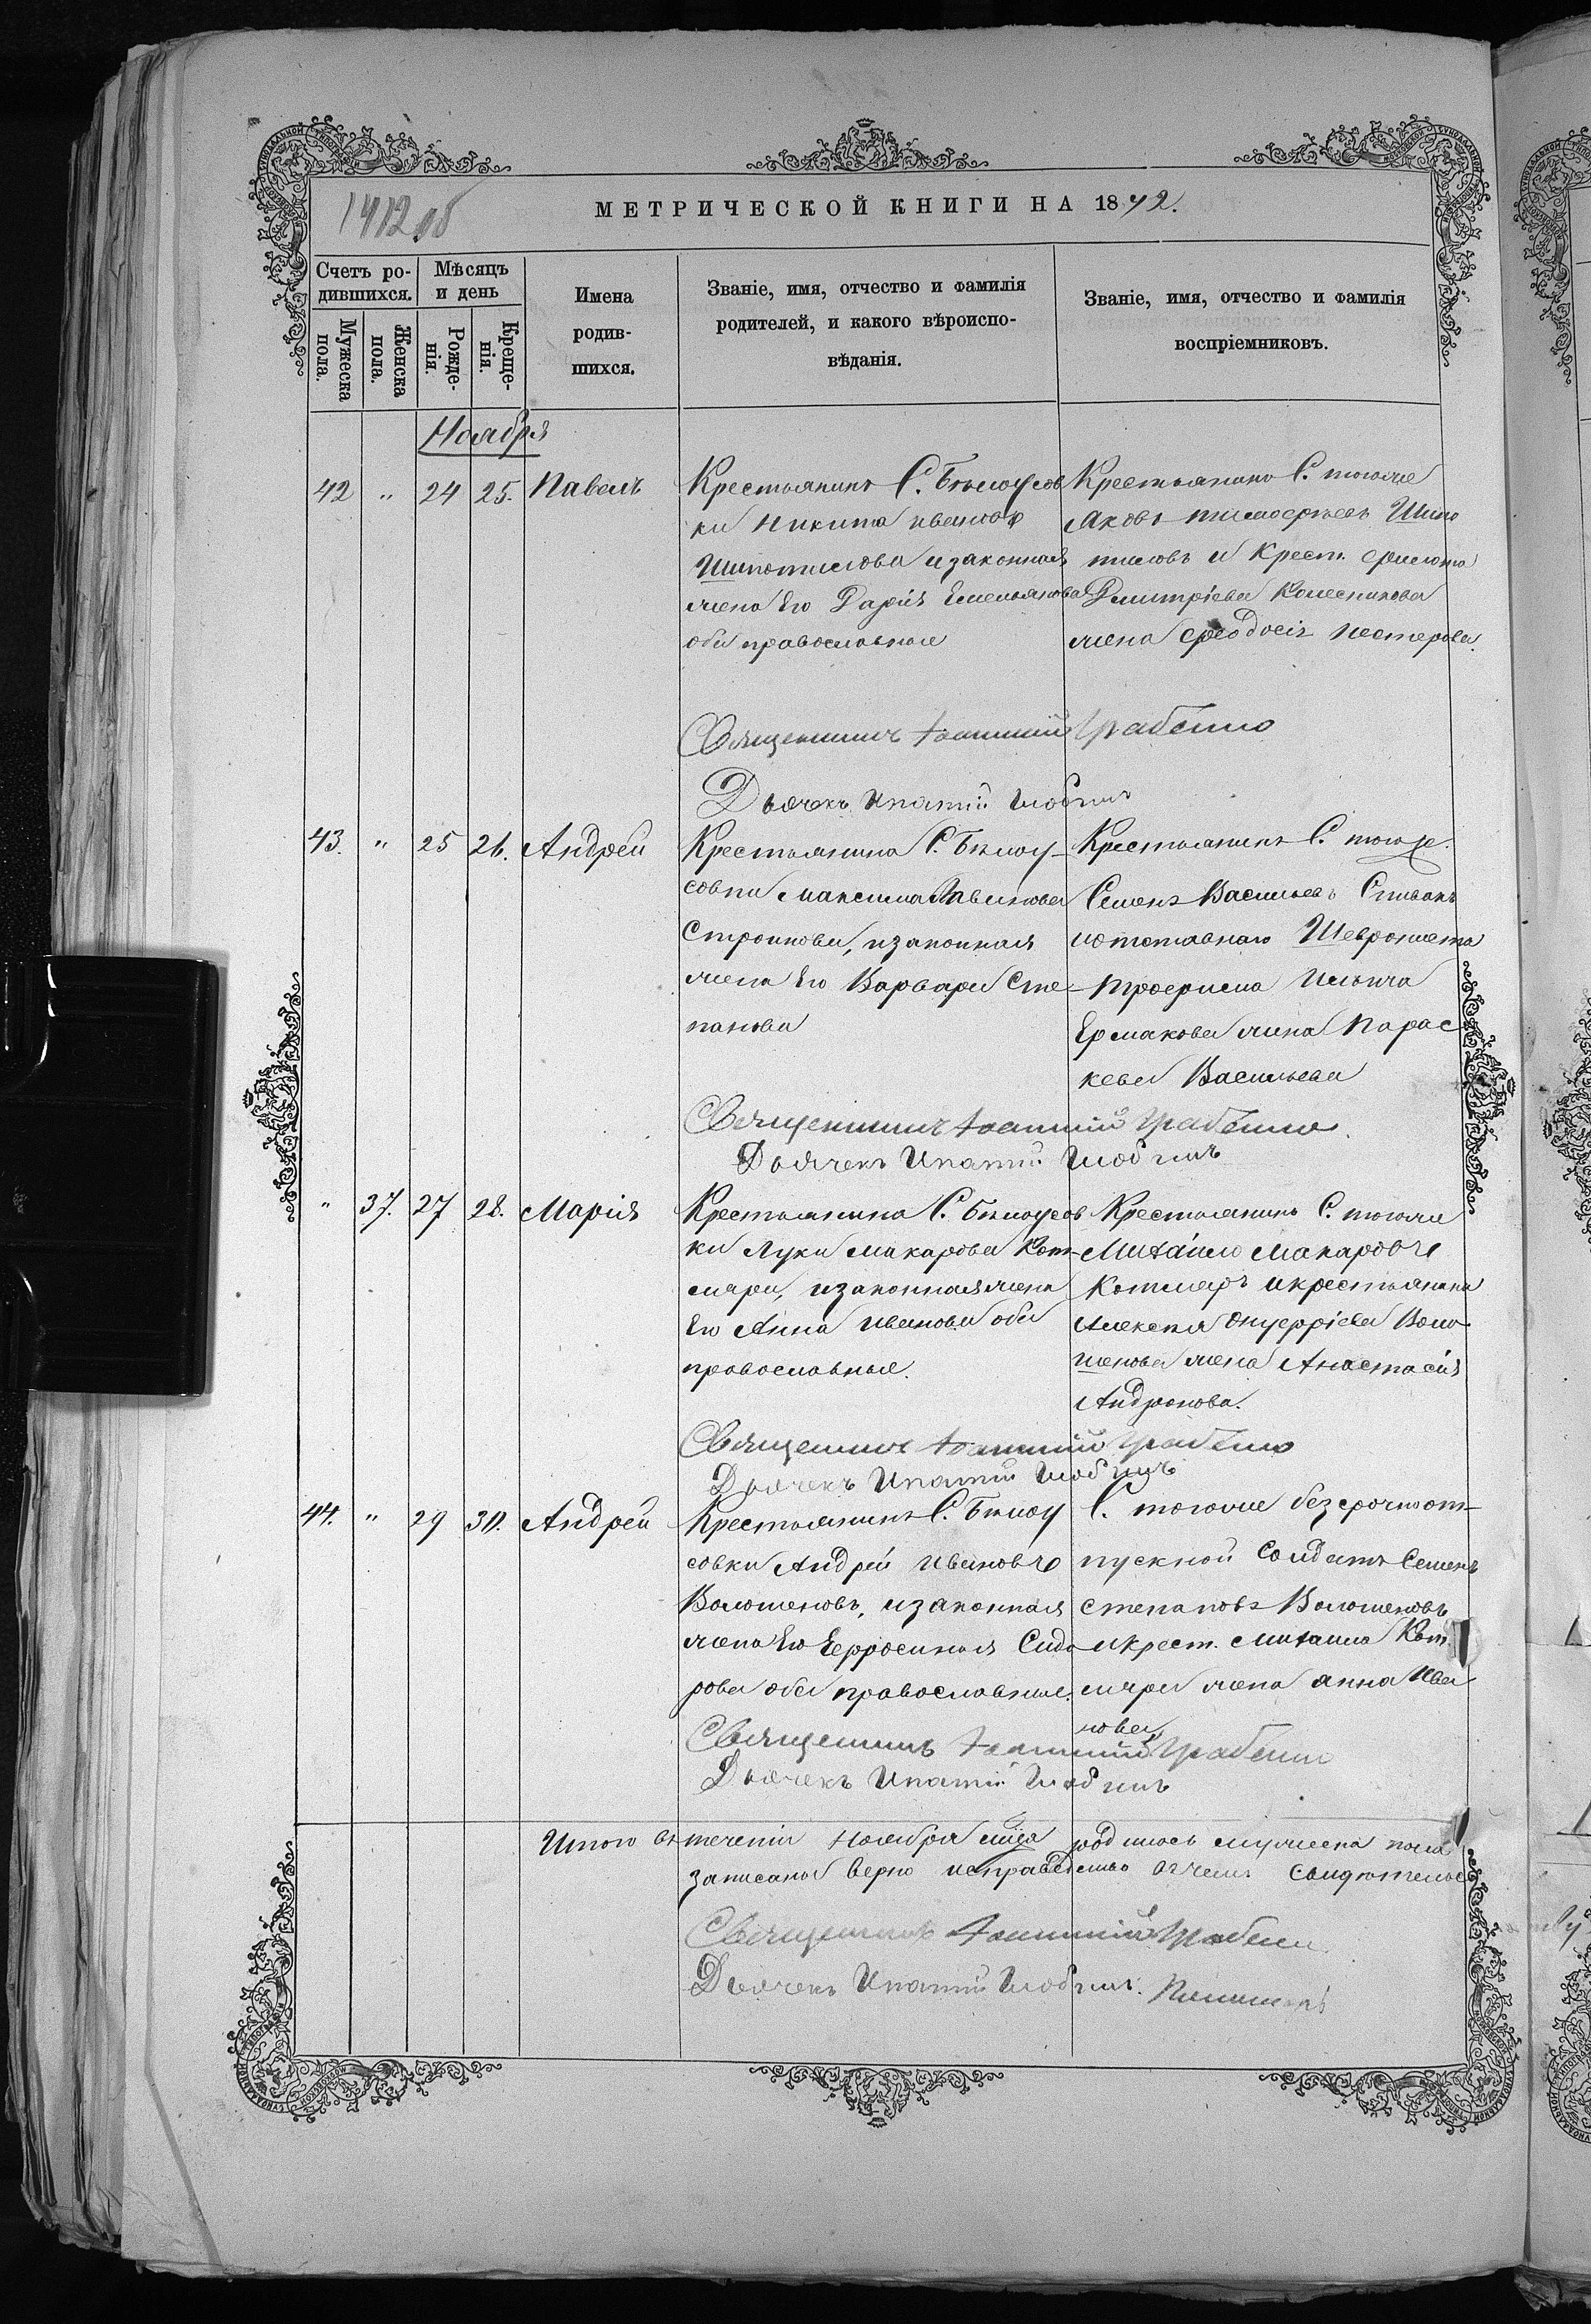 1412 об
МЕТРИЧЕСКОЙ КНИГИ НА 1872.
Счетъ ро-
дившихся.
Мѣсяцъ
и день
Мужеска
пола.
Женска
пола.
Рожде-
нія.
Креще-
нія.
Имена
родив-
шихся.
Званіе, имя, отчество и фамилія
родителей, и какого вѣроиспо-
вѣданія.
Званіе, имя, отчество и фамилія
воспріемниковъ.
Ноября
42 " 24 25. Павелъ
Крестьянинъ С. Бѣлоусов
ки Никита Ивановъ
Шипотилова и законная
жена Его Дарія Емельянова
оба православные
Крестьянинъ С. тогоже
Яковъ Тимофѣевъ Шипо
тиловъ и Крест. Филипа
Дмитріева Колесникова
жена Феодосія Нестерова.
Священникъ Іоанникій
Дьячекъ Ипатій
43. " 25 26. Андрей
Крестьянина С. Бѣлоу-
совки Максима
и законная
жена Его Варвара Сте-
панова
Крестьянинъ С. тогоже.
Семенъ Васильевъ Спивакъ
Трофима Ильича
Ермакова жена Парас
кева Васильева
Священникъ Іоанникій
Дьячекъ Ипатій
" 37. 27 28. Марія
Крестьянина С. Бѣлоусов
ки Луки Макарова Кот-
ляра, и законная жена
Его Анна Иванова оба
православные.
Крестьянинъ С. тогоже
Михаило Макаровъ
Котляръ и крестьянина
Алексѣя Онуфріева Воло
шенова жена Анастасія
Андронова.
Священникъ Іоанникій
Дьячекъ Ипатій
44. " 29 30. Андрей
Крестьянинъ С. Бѣлоу
совки Андрей Ивановъ
Волошеновъ, и законная
жена Его Ефросинія Сидо
рова оба православные.
С. тогоже безсрочноот-
пускной Солдатъ Семенъ
Степановъ Волошеновъ
и крест. Михаила Кот
ляра жена Анна Ива
нова
Священникъ Іоанникій
Дьячекъ Ипатій
Итого въ теченіи Ноября м-ца родилось мужеска пола
записано верно и справедливо въ чемъ
Священникъ Іоанникій
Дьячекъ Ипатій